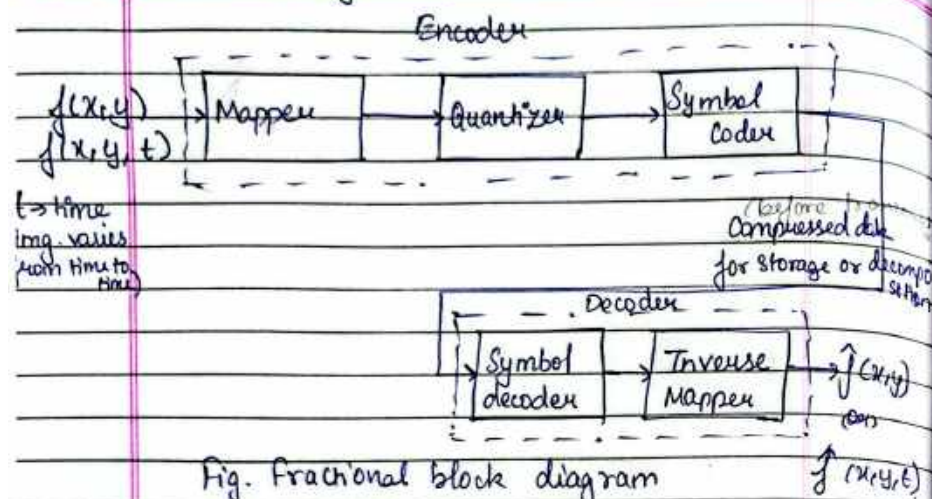 Encoder
f(x,y)
f(x,y,t)
Mapper
Quantizer
Symbol
Coder
t→time
img. varies
from time to
time)
(before
Compressed
for storage or
Decoder
Symbol
decoder
Inverse
Mapper
f̂(x,y)
(or)
f̂(x,y,t)
Fig. Fractional block diagram